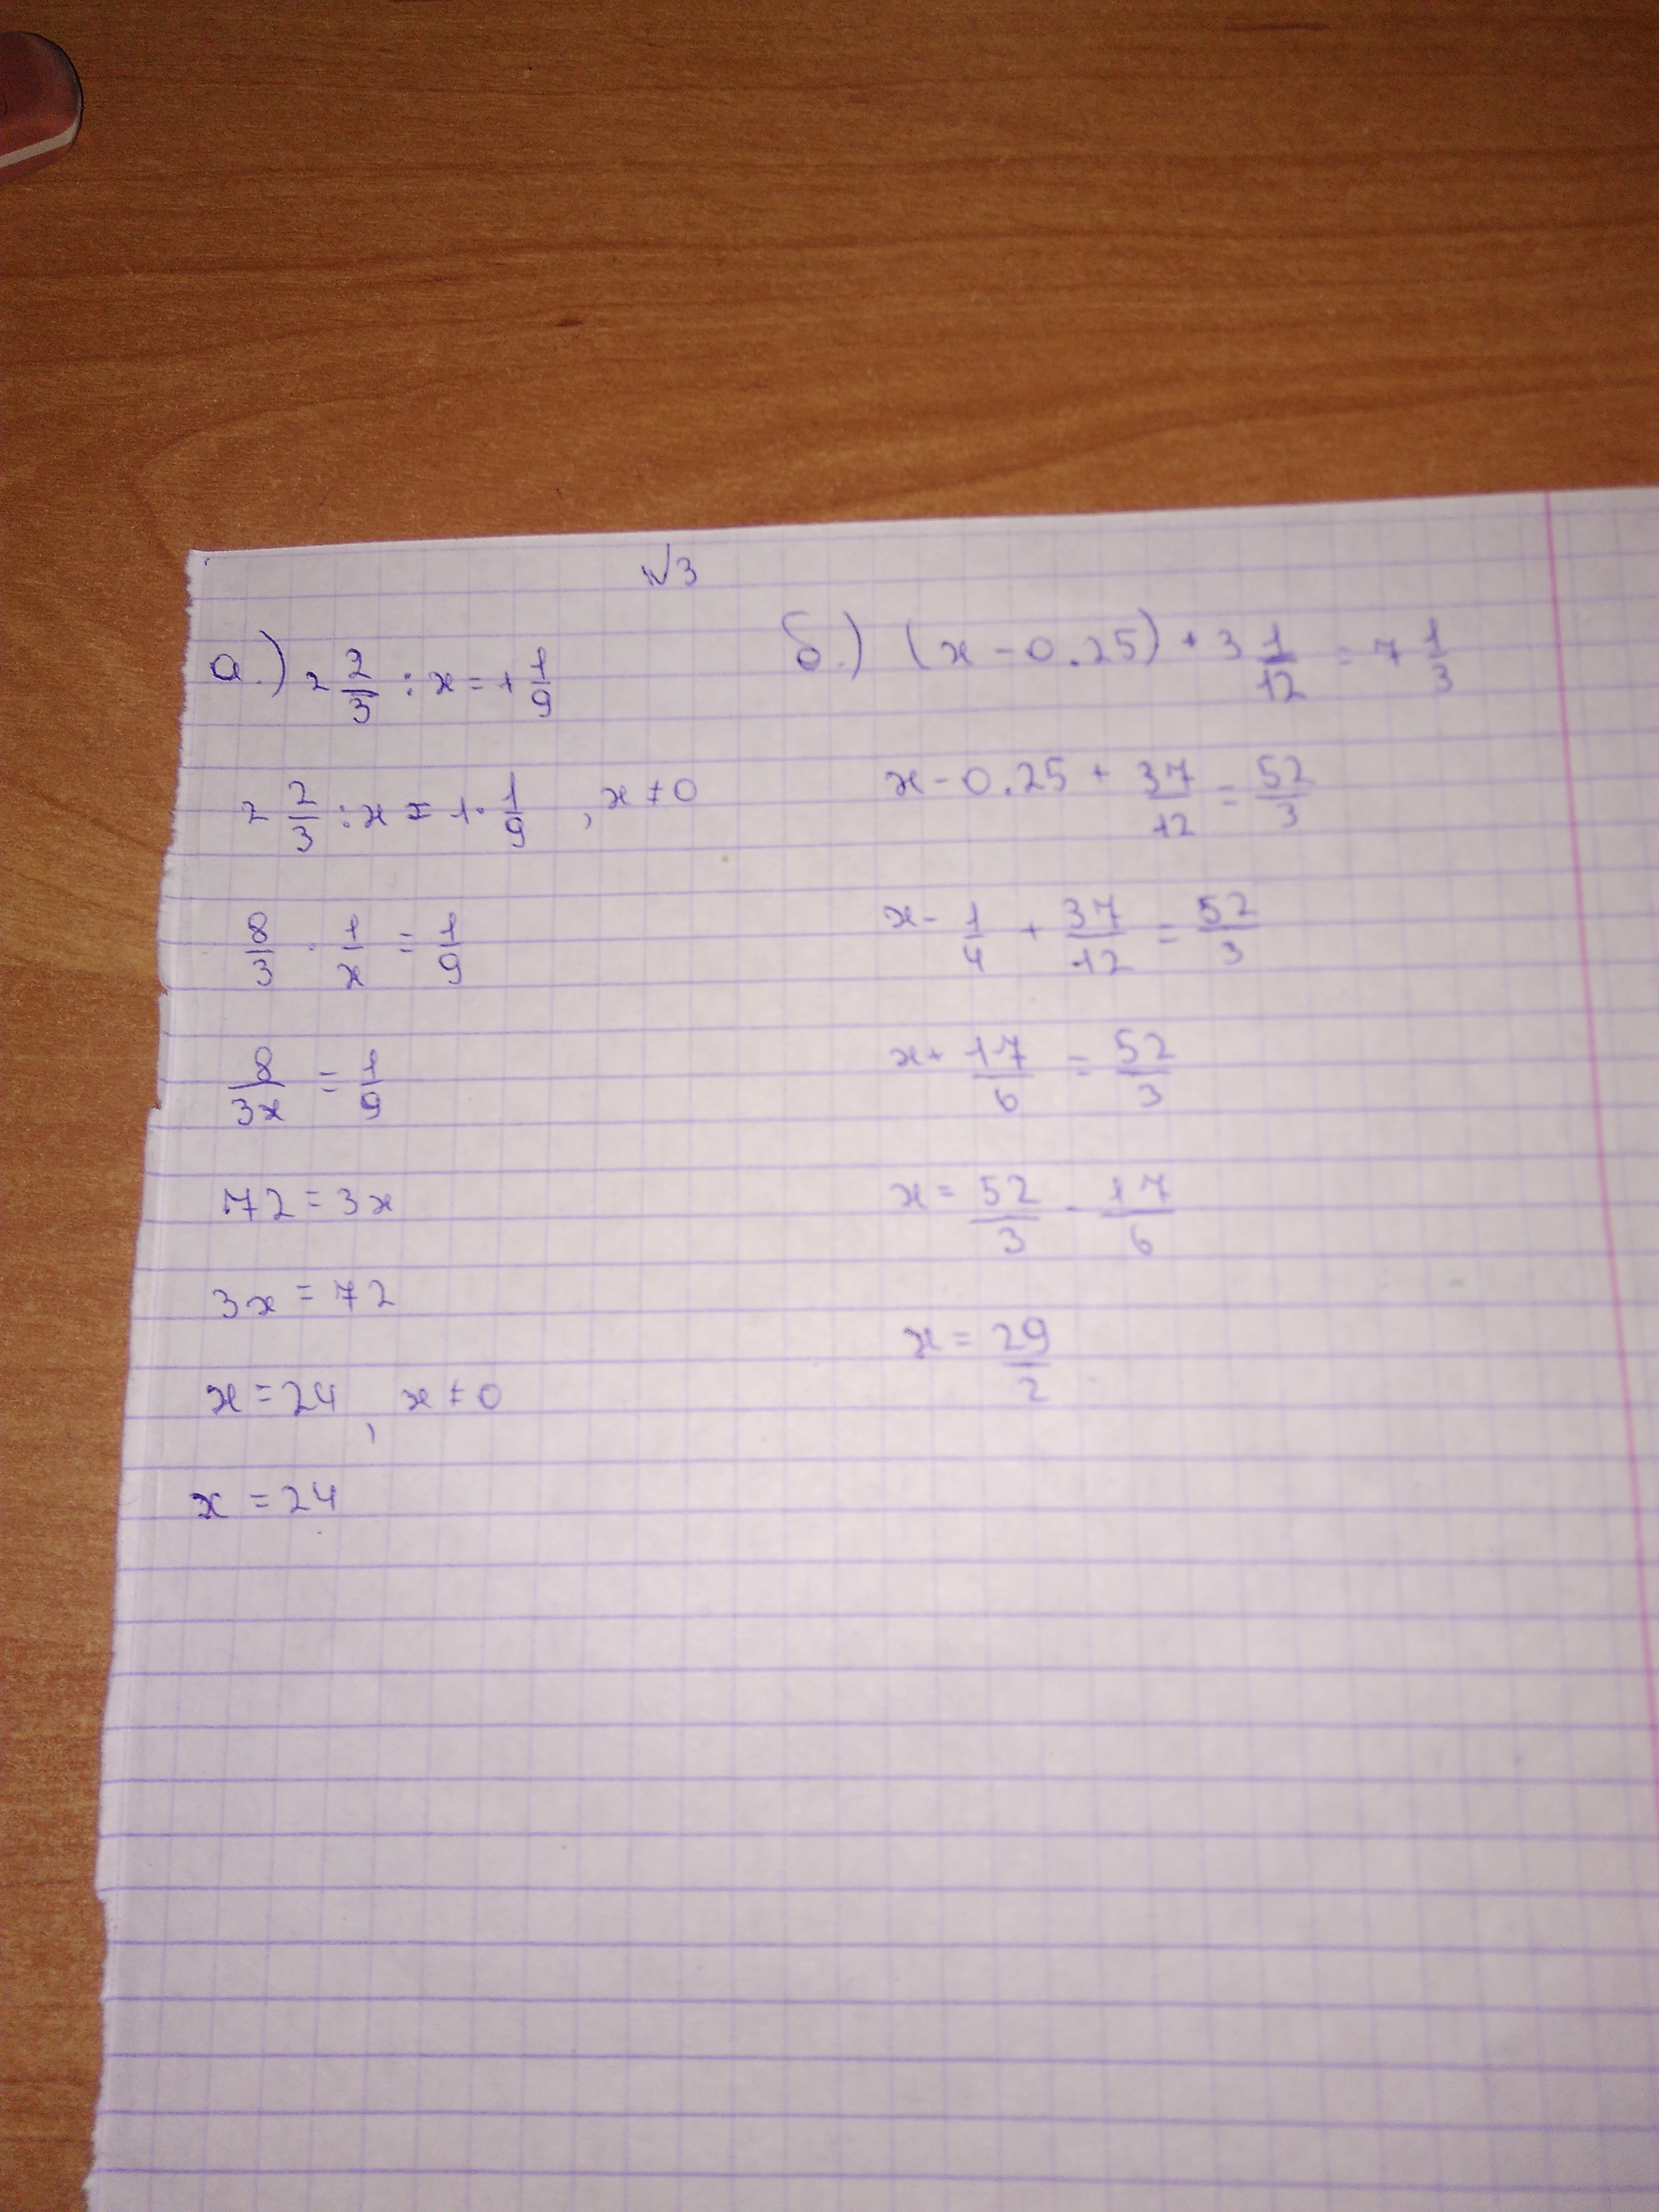 №3
а.) 2 2/3 : x = 1 1/9
2 2/3 : x = 1 · 1/9 , x ≠ 0
8/3 · 1/x = 1/9
8/3x = 1/9
72 = 3x
3x = 72
x = 24 , x ≠ 0
x = 24
б.) (x - 0.25) + 3 1/12 = 7 1/3
x - 0.25 + 37/12 = 52/3
x - 1/4 + 37/12 = 52/3
x + 17/6 = 52/3
x = 52/3 - 17/6
x = 29/2